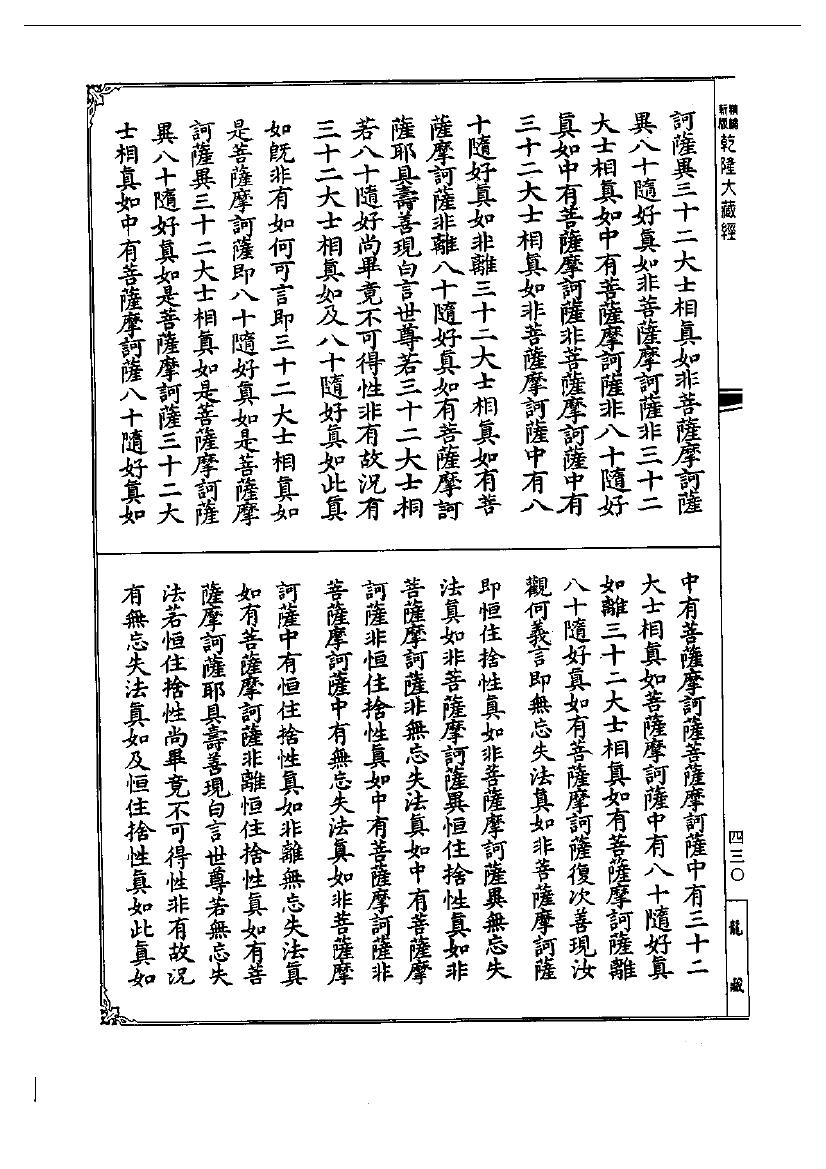 新編縮版 乾隆大藏經
訶薩異三十二大士相真如非菩薩摩訶薩
異八十隨好真如非菩薩摩訶薩非三十二
大士相真如中有菩薩摩訶薩非八十隨好
真如中有菩薩摩訶薩非菩薩摩訶薩中有
三十二大士相真如非菩薩摩訶薩中有八
十隨好真如非離三十二大士相真如有菩
薩摩訶薩非離八十隨好真如有菩薩摩訶
薩耶具壽善現白言世尊若三十二大士相
若八十隨好尚畢竟不可得性非有故況有
三十二大士相真如及八十隨好真如此真
如既非有如何可言即三十二大士相真如
是菩薩摩訶薩即八十隨好真如是菩薩摩
訶薩異三十二大士相真如是菩薩摩訶薩
異八十隨好真如是菩薩摩訶薩三十二大
士相真如中有菩薩摩訶薩八十隨好真如
中有菩薩摩訶薩菩薩摩訶薩中有三十二
大士相真如菩薩摩訶薩中有八十隨好真
如離三十二大士相真如有菩薩摩訶薩離
八十隨好真如有菩薩摩訶薩復次善現汝
觀何義言即無忘失法真如非菩薩摩訶薩
即恒住捨性真如非菩薩摩訶薩異無忘失
法真如非菩薩摩訶薩異恒住捨性真如非
菩薩摩訶薩非無忘失法真如中有菩薩摩
訶薩非恒住捨性真如中有菩薩摩訶薩非
菩薩摩訶薩中有無忘失法真如非菩薩摩
訶薩中有恒住捨性真如非離無忘失法真
如有菩薩摩訶薩非離恒住捨性真如有菩
薩摩訶薩耶具壽善現白言世尊若無忘失
法若恒住捨性尚畢竟不可得性非有故況
有無忘失法真如及恒住捨性真如此真如
四三〇
龍藏